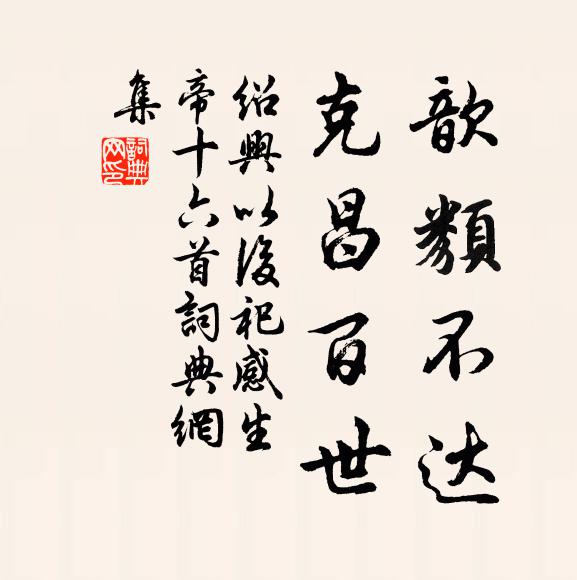 歆類不达
克昌百世
绍興以後祀感生
帝十六首詞典網
集
詞典网印